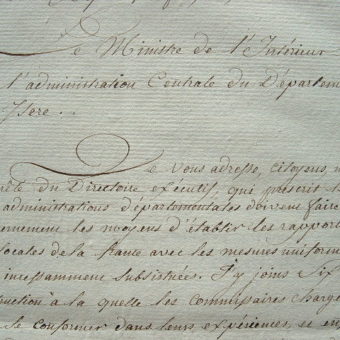 Le Ministre de l'Intérieur
l'administration Centrale du Départem
Isere..
Je vous adresse, Citoyens,
du Directoire exécutif, qui prescrit
administrations départementales doivent faire
ernement les moyens d'établir les rapport
locales de la france avec les mesures uniform
incessamment substituées. J'y joins
ruction à la quelle les Commissaires charg
se conformer dans leurs expériences, se en